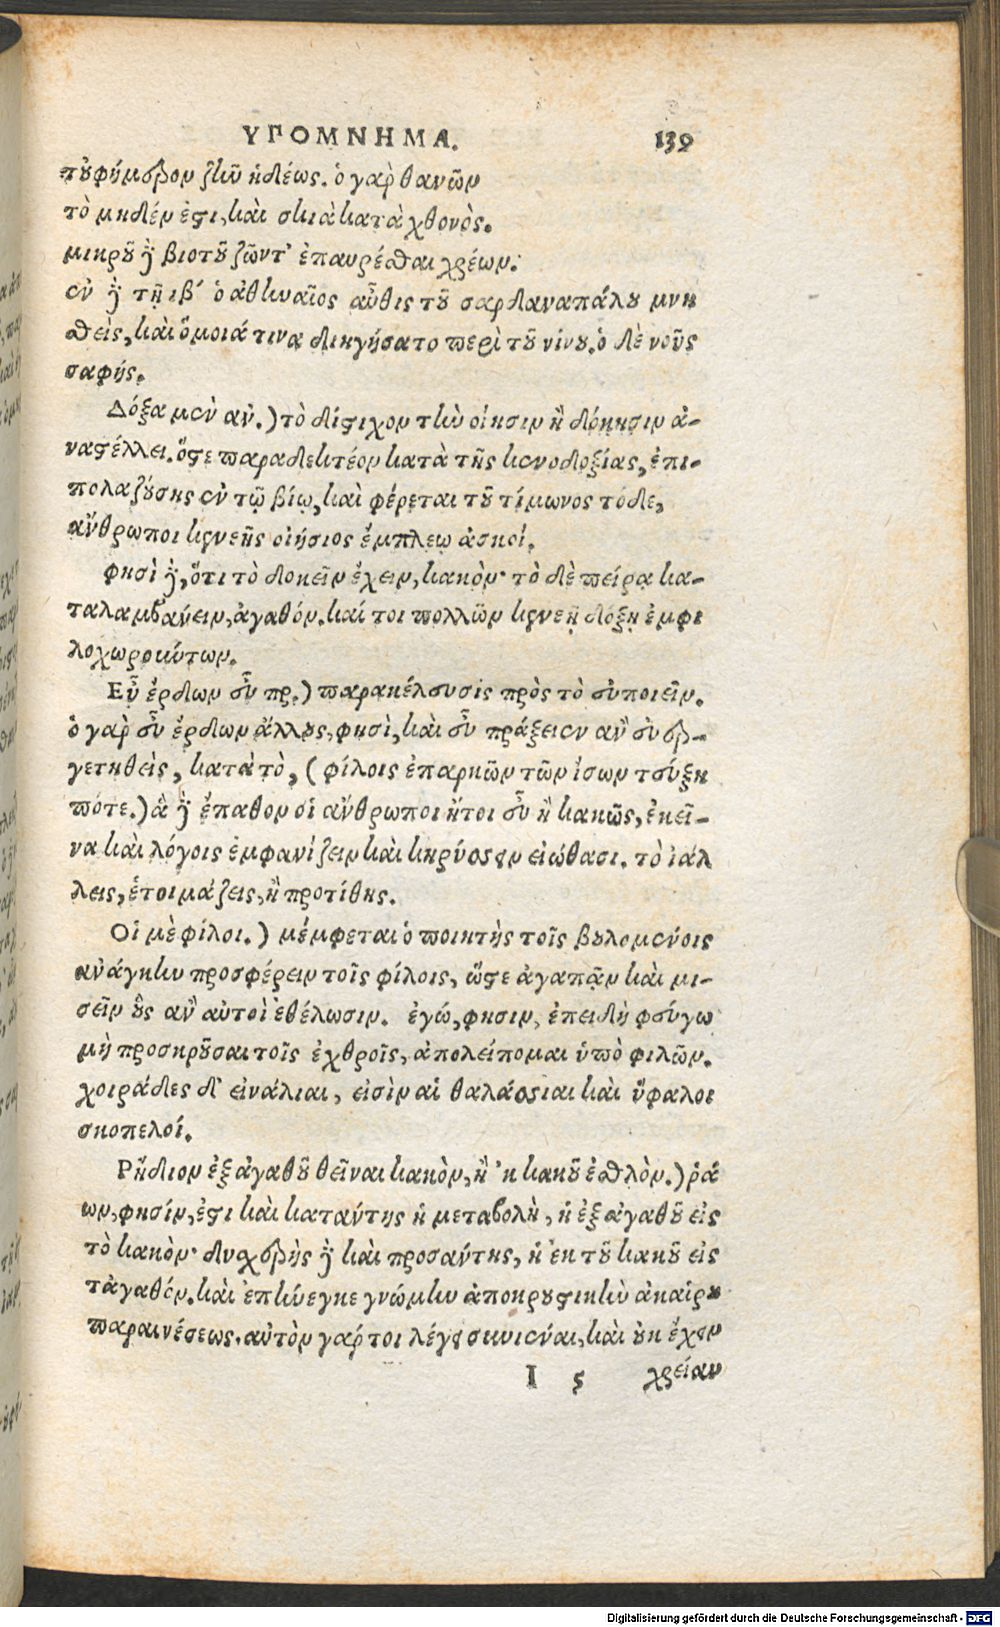 ΥΠΟΜΝΗΜΑ. 139
τρυφήμενον ζῆν ἡδέως. ὁ γαρ θανὼν
τὸ μηδέν ἐστι, καὶ σκιὰ κατὰ χθονὸς.
μικροῦ δὲ βιότου ζῶντ' ἐπαυρέσθαι χρέων.
ἐν δὲ τῇ ιβ' ὁ ἀθηναῖος αὖθις τοῦ σαρδαναπάλου μνη
σθεὶς, καὶ ὅμοιά τινα διηγήσατο περὶ τοῦ νίνου. ὁ δὲ νοῦς
σαφής.
Δόξα μὲν αν.) τὸ δίστιχον τὴν οἴησιν ἢ δόκησιν ἀ-
ναστέλλει. ὅστε παραδεκτέον κατὰ τῆς κενοδοξίας, ἐπι-
πολαζούσης ἐν τῷ βίῳ, καὶ φέρεται τοῦ τίμωνος τόδε,
ἄνθρωποι κενεῆς οἰήσιος ἔμπλεῳ ἀσκοί.
φησὶ δὲ, ὅτι τὸ δοκεῖν ἔχειν, κακὸν· τὸ δὲ πείρᾳ κα-
ταλαμβάνειν, ἀγαθόν. καί τοι πολλῶν κενεῇ δόξῃ ἐμφι
λοχωρούντων.
Εὖ ἔρδων εὖ πρ.) παρακέλευσις πρὸς τὸ εὐποιεῖν.
ὁ γαρ εὖ ἔρδων ἄλλους, φησὶ, καὶ εὖ πράξειεν ἂν εὐερ-
γετηθεὶς, κατὰ τὸ, (φίλοις ἐπαρκῶν τῶν ἴσων τεύξῃ
πότε.) ἃ δὲ ἔπαθον οἱ ἄνθρωποι ἤτοι εὖ ἢ κακῶς, ἐκεῖ-
να καὶ λόγοις ἐμφανίζειν καὶ κηρύσσειν εἰώθασι. τὸ ἰάλ
λεις, ἑτοιμάζεις, ἢ προτίθης.
Οἵ μὲ φίλοι.) μέμφεται ὁ ποιητὴς τοῖς βουλομένοις
ἀνάγκην προσφέρειν τοῖς φίλοις, ὥστε ἀγαπᾷν καὶ μι-
σεῖν οὓς ἂν αὐτοὶ ἐθέλωσιν. ἐγώ, φησιν, ἐπειδὴ φεύγω
μὴ προσκροῦσαι τοῖς ἐχθροῖς, ἀπολείπομαι ὑπὸ φιλῶν.
χοιράδες δ' εἰνάλιαι, εἰσὶν αἱ θαλάσσιαι καὶ ὕφαλοι
σκοπελοί.
Ρᾴδιον ἐξ ἀγαθοῦ θεῖναι κακὸν, ἢ 'κ κακοῦ ἐσθλὸν.) ῥά
ων, φησίν, ἐστι καὶ κατάντης ἡ μεταβολὴ, ἡ ἐξ ἀγαθοῦ εἰς
τὸ κακὸν· δυσχερὴς δὲ καὶ προσάντης, ἡ ἐκ τοῦ κακοῦ εἰς
τἀγαθόν. καὶ ἐπήνεγκε γνώμην ἀποκρουστικὴν ἀκαίρου
παραινέσεως. αὐτὸν γάρ τοι λέγει συνιέναι, καὶ οὐκ ἔχειν
I 5 χρείαν
Digitalisierung gefördert durch die Deutsche Forschungsgemeinschaft - DFG